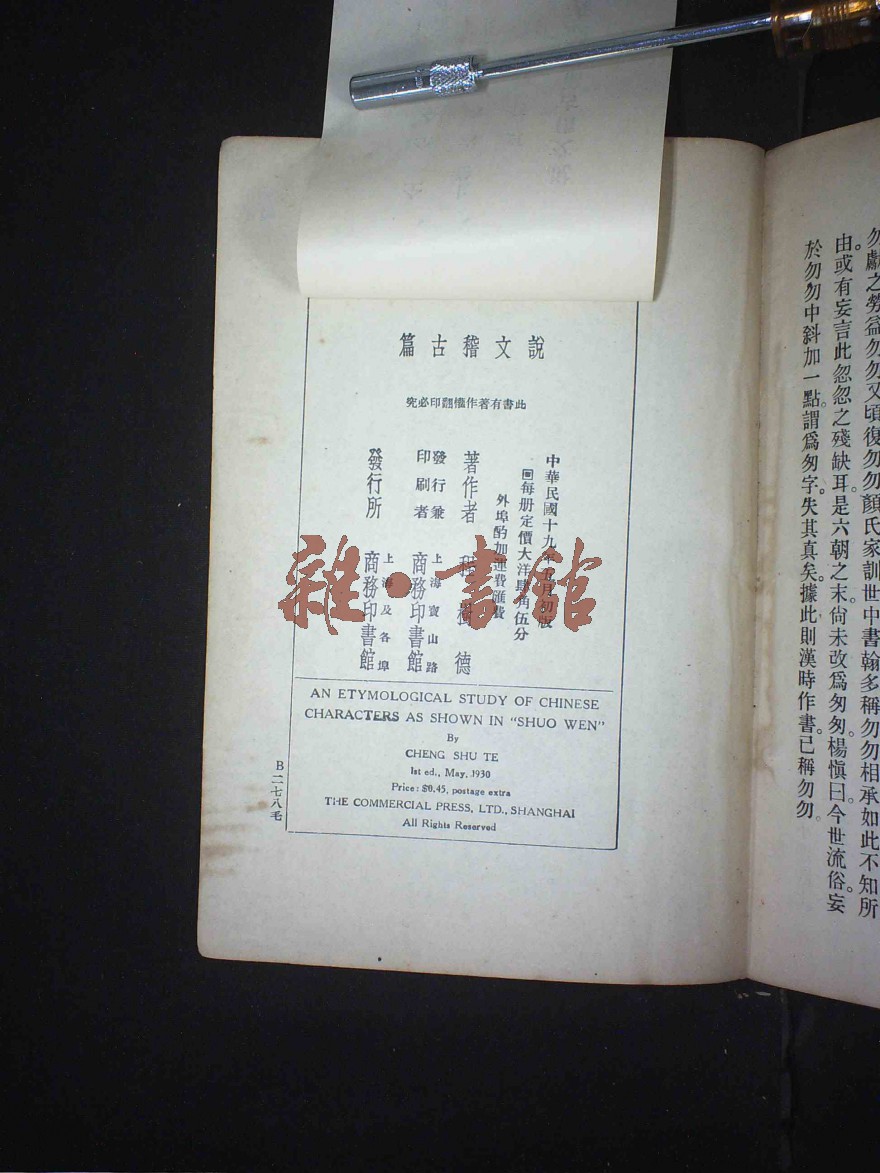 勿獻之勞益勿勿又頃復勿勿顏氏家訓世中書翰多稱勿勿相承如此不知所
由。或有妄言此忽忽之殘缺耳。是六朝之末。尚未改爲匆匆。楊愼曰。今世流俗。妄
於勿勿中斜加一點。謂爲匆字。失其真矣。據此則漢時作書已稱勿勿。
說文稽古篇
此書有著作權翻印必究
中華民國十九年五月初版
回每册定價大洋肆角伍分
外埠酌加運費匯費
著作者 程樹德
發行兼印刷者 上海寶山路 商務印書館
發行所 上海及各埠 商務印書館
AN ETYMOLOGICAL STUDY OF CHINESE
CHARACTERS AS SHOWN IN "SHUO WEN"
By
CHENG SHU TE
1st ed., May, 1930
Price: $0.45, postage extra
THE COMMERCIAL PRESS, LTD., SHANGHAI
All Rights Reserved
B二七八毛
雜·書館